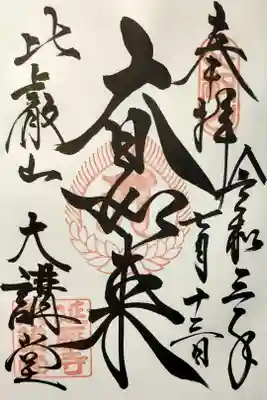 奉拝
令和三年
七月十三日
大日如来
比叡山
大講堂
延暦寺